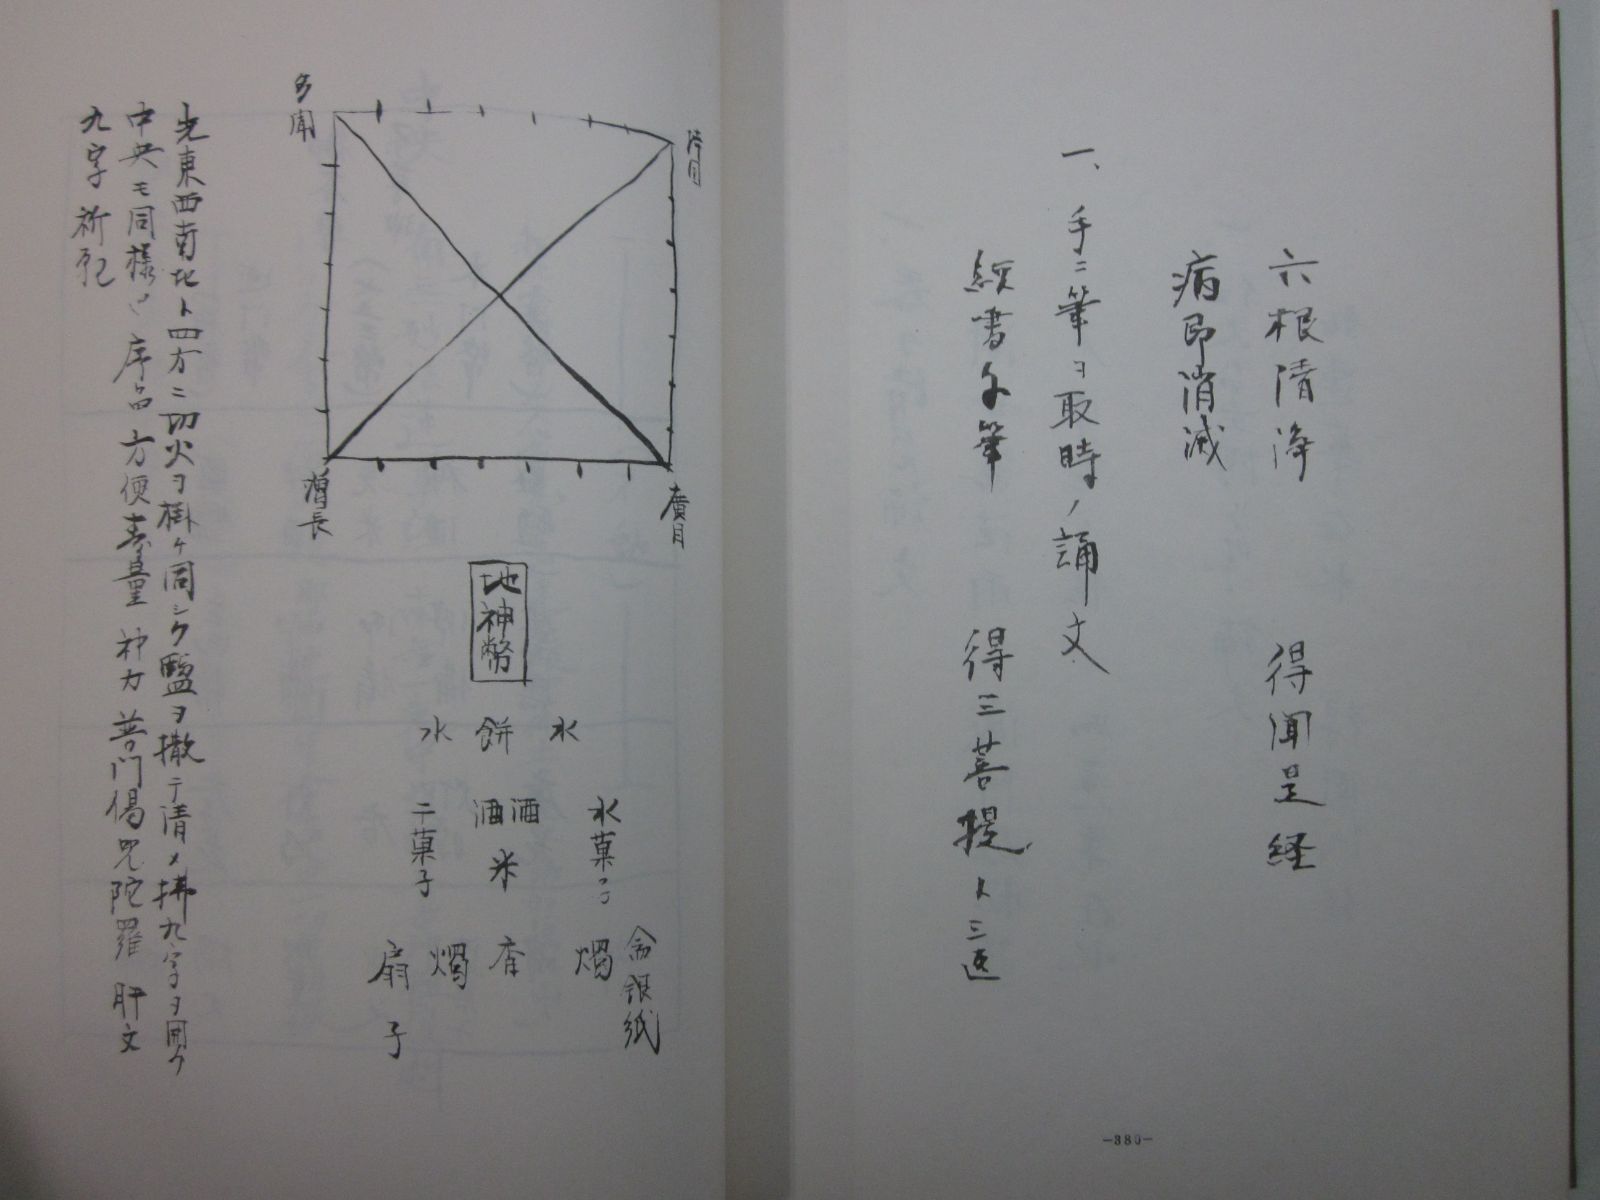 六根清浄 得聞是経
病即消滅
一、手ニ筆ヲ取時ノ誦文
書 筆 得三菩提ト三返
多聞
持国
増長
廣目
地神幣
水 餅 水
水菓子
酒酒
干菓子
米
金銀紙
燭
香
燭
扇子
先東西南北ト四方ニ切火ヲ掛ケ同シク塩ヲ撒テ清メ拂九字ヲ用ク
中央モ同様 序品方便寿量 神力 普門偈咒陀羅 肝文
九字 祈祀
-380-